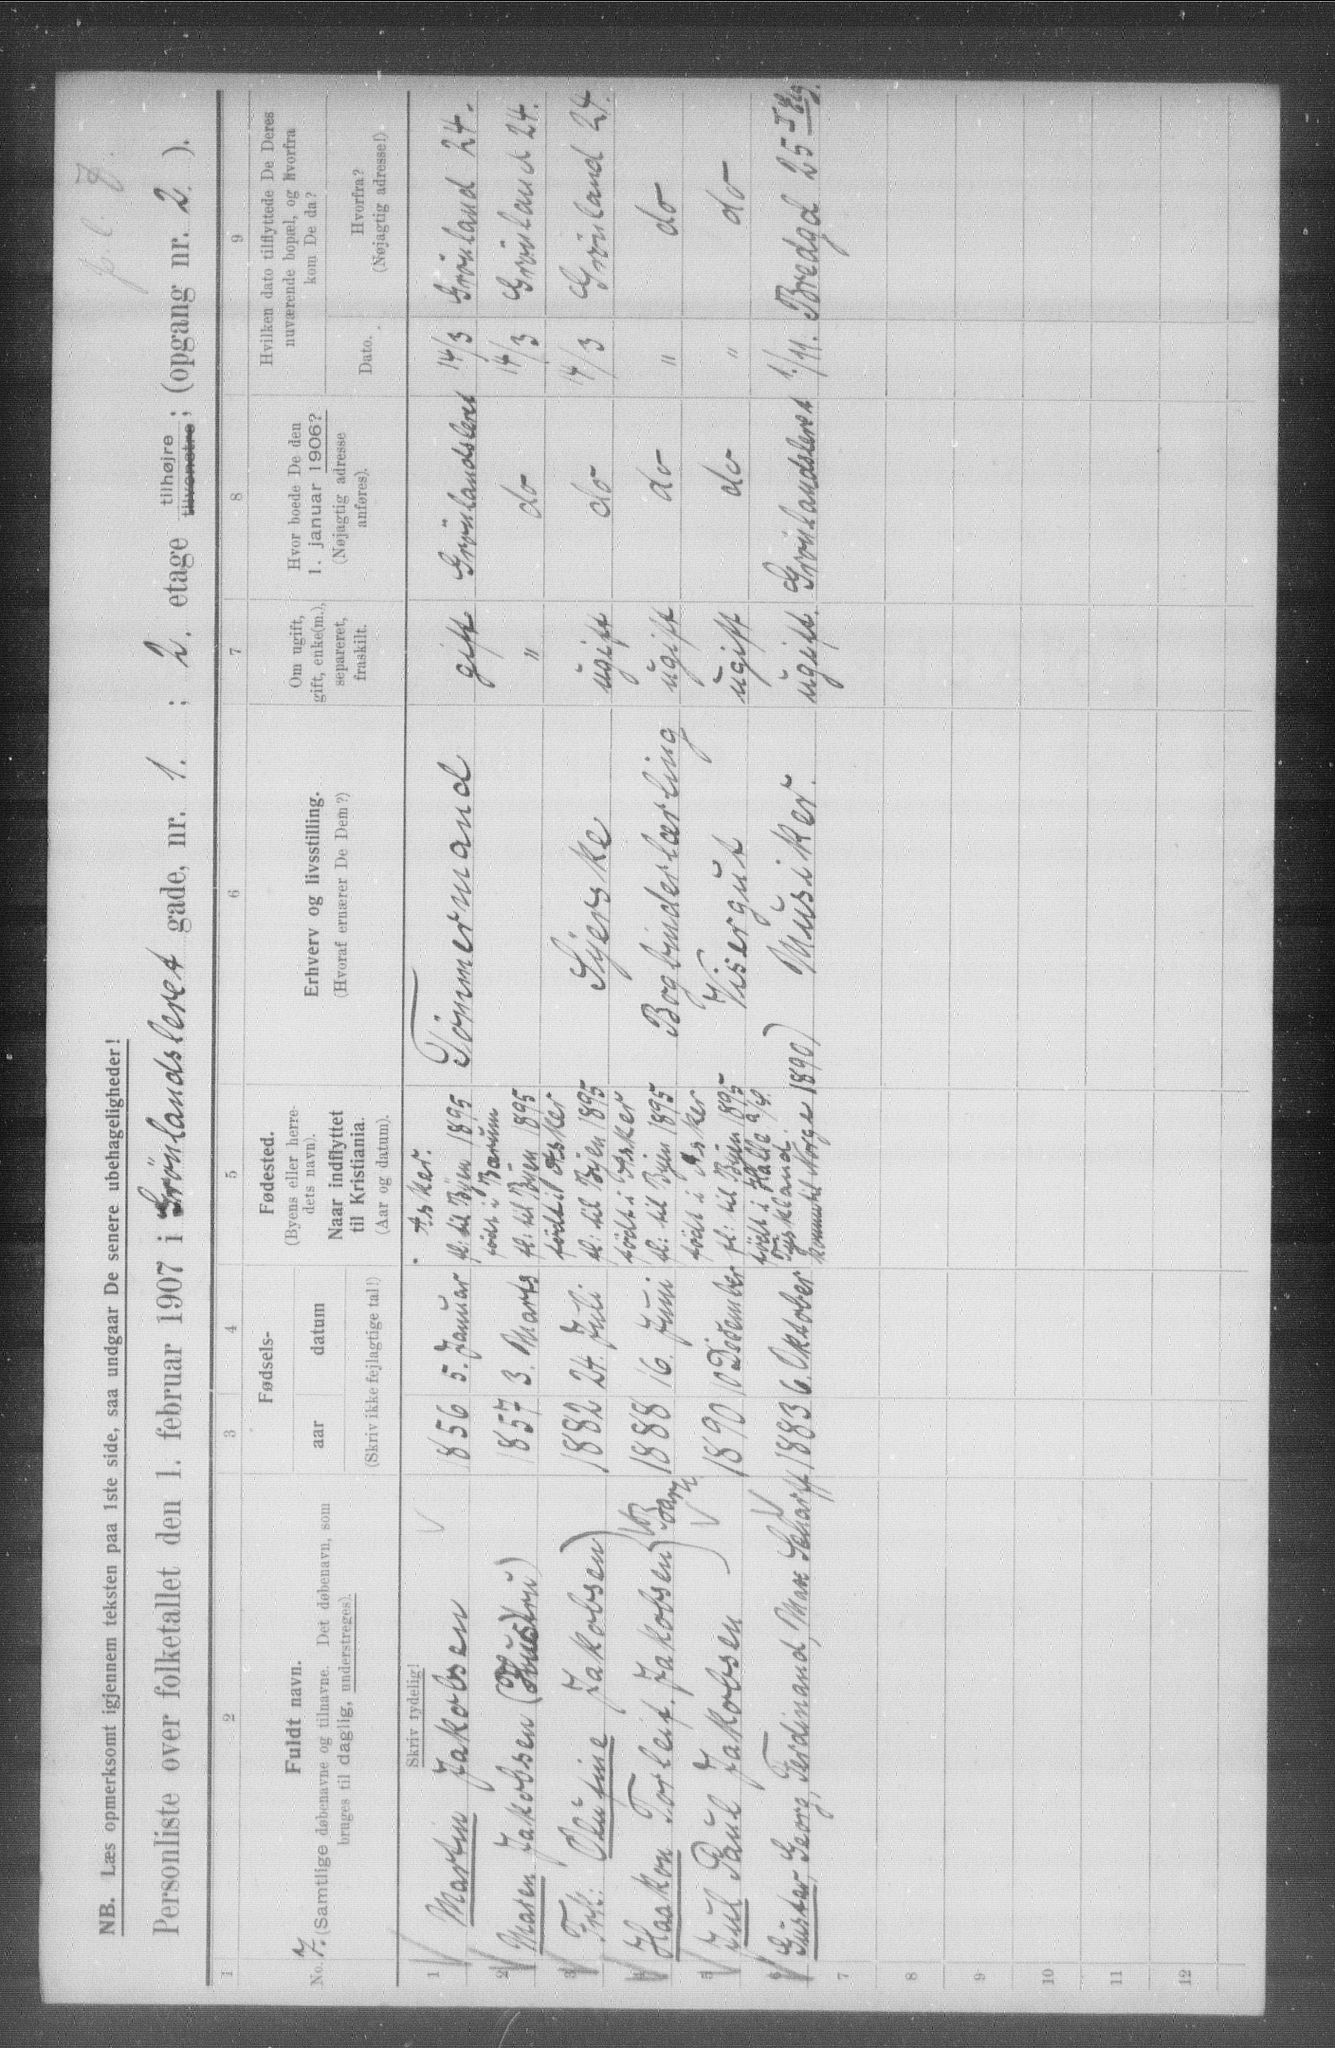 NB. Læs opmerksomt igjennem teksten paa 1ste side, saa undgaar De senere ubehageligheder!
p. l. 7.
Personliste over folketallet den 1. februar 1907 i Grönlandsleret gade, nr. 1. ; 2. etage tilhøjre tilvenstre; (opgang nr. 2 ).
1 2 3 4 5 6 7 8 9
No. 7. Fuldt navn.
(Samtlige døbenavne og tilnavne. Det døbenavn, som
bruges til daglig, understreges).
Fødsels-
aar datum
(Skriv ikke fejlagtige tal!)
Fødested.
(Byens eller herre-
dets navn).
Naar indflyttet
til Kristiania.
(Aar og datum).
Erhverv og livsstilling.
(Hvoraf ernærer De Dem?)
Om ugift,
gift, enke(m.),
separeret,
fraskilt.
Hvor boede De den
1. januar 1906?
(Nøjagtig adresse
anføres).
Hvilken dato tilflyttede De Deres
nuværende bopæl, og hvorfra
kom De da?
Dato.
Hvorfra?
(Nøjagtig adresse!)
Skriv tydelig!
1 Martin Jakobsen 1856 5. Januar Asker.
fl: til Byen 1895 Tömmermand gift Grönlandsleret 14/3 Grönland 24.
2 Maren Jakobsen 1857 3. Marts født i Bærum
fl: til Byen 1895 " do 14/3 Grönland 24.
3 Frk: Olufine Jakobsen 1882 24. Juli født i Asker
fl: til Byen 1895 Syerske ugift do 14/3 Grönland 24.
4 Haakon Torleif Jakobsen 1888 16. Juni født i Asker
fl: til Byen 1895 Bogbinderlærling ugift do " do
Barn
5 Jul Paul Jakobsen 1890 10 Desember født i Asker
fl: til Byen 1895 Visergut ugift do " do
6 Gustav, Georg, Ferdinand, Max Scharff 1883 6. Oktober født i Halle a/S.
Tyskland.
kommet til Norge 1890) Musiker. ugift. Grönlandsleret 1/11. Bredgd 25
7
8
9
10
11
12